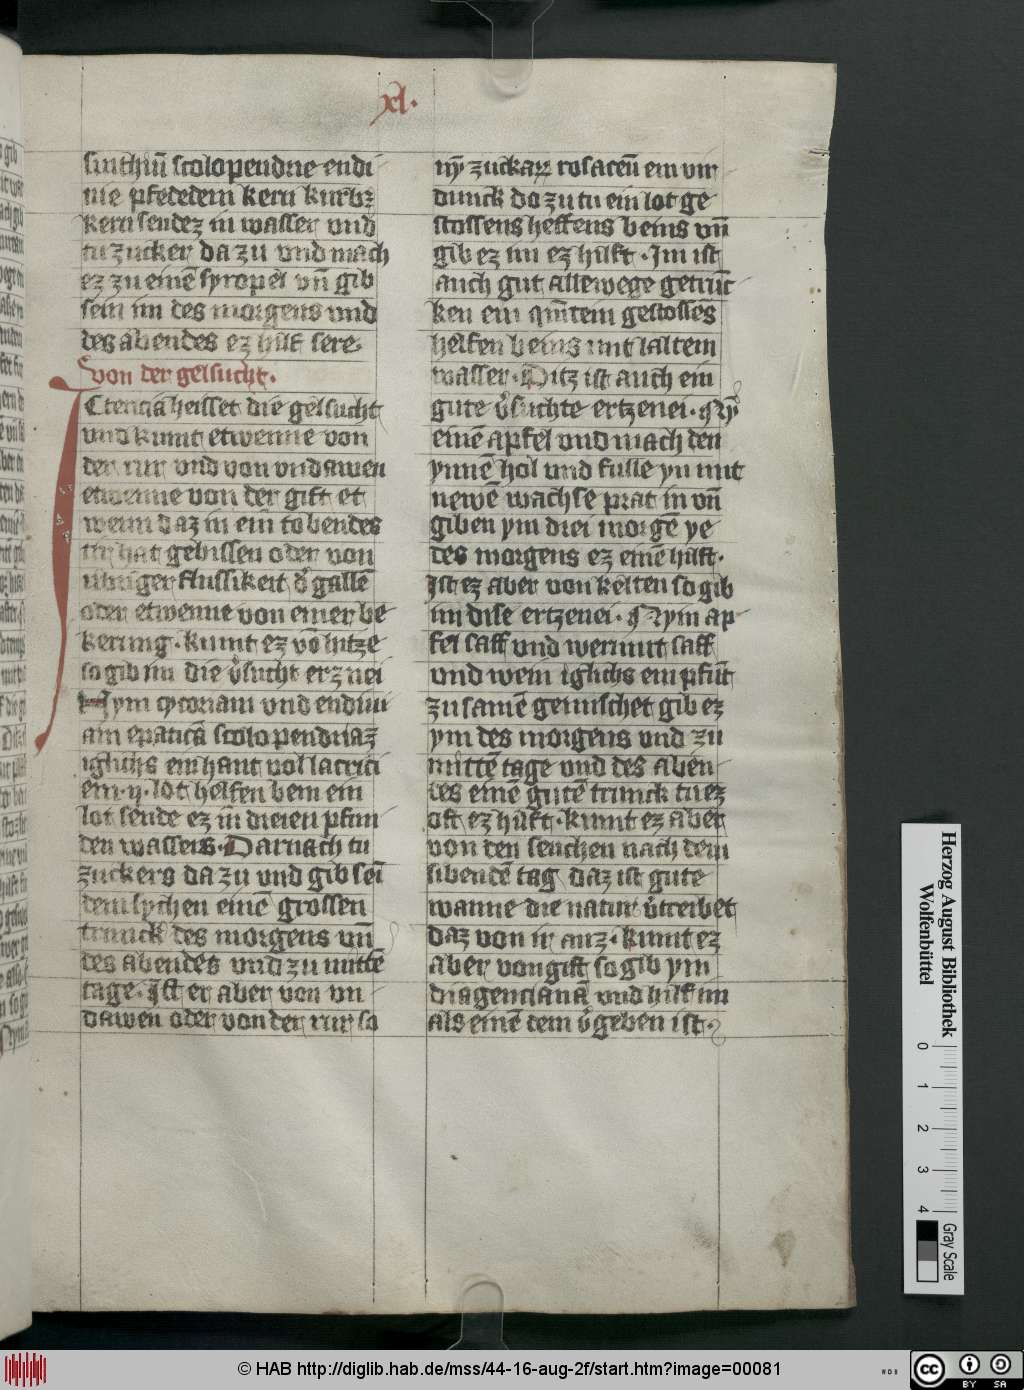 xl.
sinthiu̅ scolopendrie endi
nie pfedelem kern kurbz
kern sendez in wasser vnd
tu zucker da zu vnd mach
ez zu eine̅ syropel vn̅ gib
sein im des morgens vnd
des abendes ez hilft sere.
von der gelsucht.
Ictericia heisset die gelsucht
vnd kumt etwenne von
der rur vnd von vndawen
etwenne von der gift et
wenn daz in ein tobendes
tir hat gebissen oder von
ubriger flussikeit d' galle̅
oder etwenne von einer be
kerung. kumt ez vo̅ hitze
so gib im die v'sucht erznei
Nym cycoriam vnd endiui
am epatica̅ scolopendriaz
iglichs ein hant vol lacrici
em .ij. lot helfen bein ein
lot sende ez in dreien pfun
den wassers. Darnach tu
zuckers da zu vnd gib sei̅
dem sychen eine̅ grossen
trunck des morgens vn̅
des abendes vnd zu mitte̅
tage. Ist er aber von vn
dawen oder von der rur so
ny̅ zuckar rosaceu̅ ein vir
dunck do zu tu ein lot ge
stossens helfens beins vn̅
gib ez im ez hilft. Im ist
auch gut allewege getru̅c
ken ein qui̅tein gestosse̅s
helfen beins mit laltem
wasser. Ditz ist auch ein
gute v'suchte ertzenei. Ny̅
eine̅ apfel vnd mach den
ynne̅ hol vnd fulle yn mit
newe̅ wachse prat in vn̅
giben ym drei morge̅ ye
des morgens ez eine̅ hilft.
Ist ez aber von kelten so gib
im dise ertzenei. Nym ap
fel saff vnd wermut saff
vnd wein iglichs ein pfu̅t
zu same̅ gemischet gib ez
ym des morgens vnd zu
mitte̅ tage vnd des aben
des eine̅ gute̅ trunck tu ez
oft ez hilft. kumt ez aber
von den seuchen nach dem
sibende̅ tag daz ist gute
wanne die natur v'treibet
daz von ir auz. kumt ez
aber von gift so gib ym
diagenciana̅ vnd hilf im
als eine̅ dem v'geben ist.
Herzog August Bibliothek
Wolfenbüttel
0 1 2 3 4
Gray Scale
© HAB http://diglib.hab.de/mss/44-16-aug-2f/start.htm?image=00081
cc BY SA